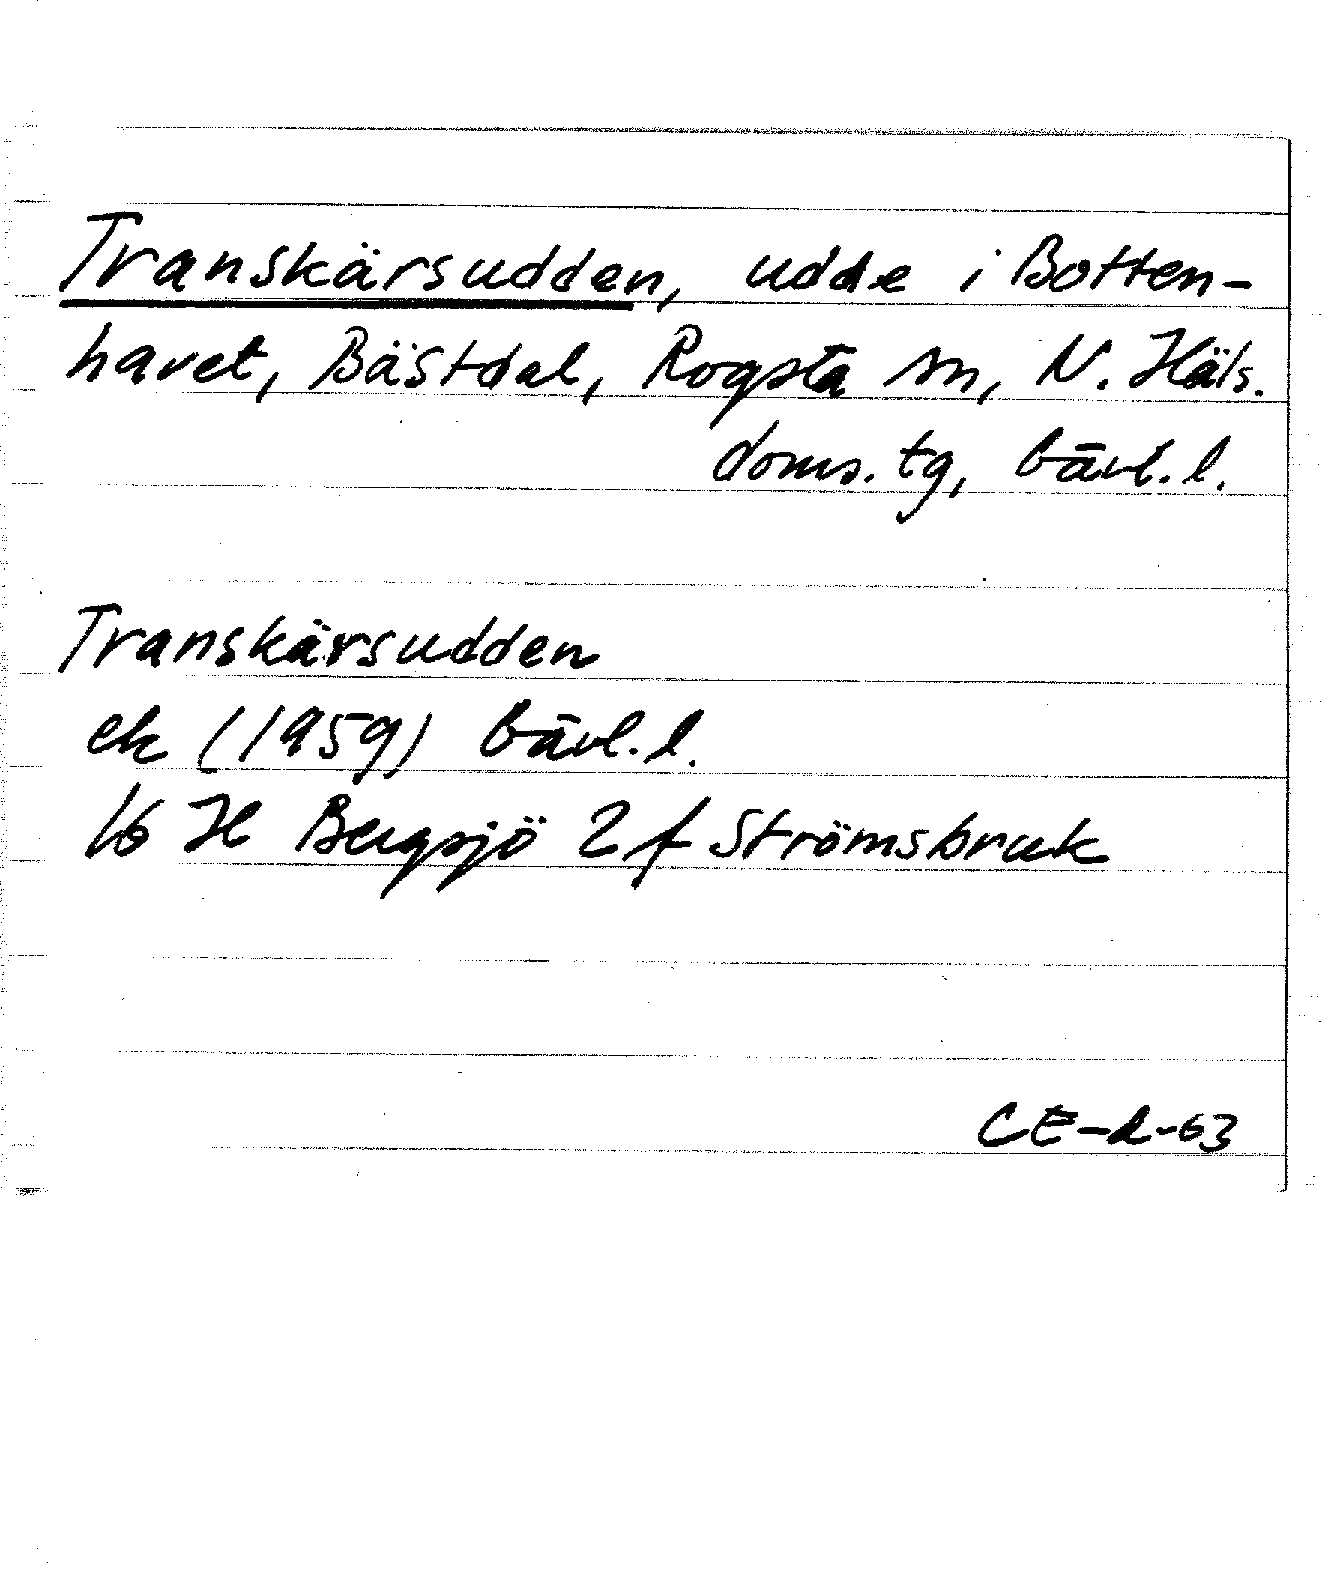 Transkärsudden, udde i Botten-
havet, Bästdal, Rogsta sn, N. Häls.
doms.tg, Gävl.l.
Transkärsudden
ek (1959) Gävl.l.
16 H Bergsjö 2 f Strömsbruk
CE-R-63